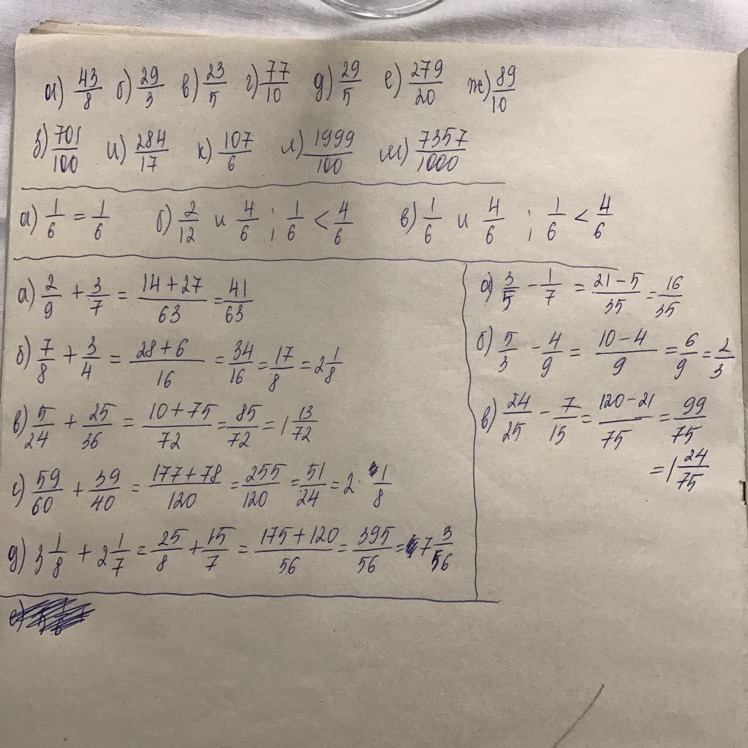 а) 43/8 б) 29/3 в) 23/5 г) 77/10 д) 29/5 е) 279/20 ж) 89/10
з) 701/100 и) 284/17 к) 107/6 л) 1999/100 м) 7357/1000
а) 1/6 = 1/6 б) 2/12 и 4/6 ; 1/6 < 4/6 в) 1/6 и 4/6 ; 1/6 < 4/6
а) 2/9 + 3/7 = 14+27/63 = 41/63
б) 7/8 + 3/4 = 28+6/16 = 34/16 = 17/8 = 2 1/8
в) 5/24 + 25/36 = 10+75/72 = 85/72 = 1 13/72
г) 59/60 + 39/40 = 177+78/120 = 255/120 = 51/24 = 2 1/8
д) 3 1/8 + 2 1/7 = 25/8 + 15/7 = 175+120/56 = 395/56 = 7 3/56
а) 3/5 - 1/7 = 21-5/35 = 16/35
б) 5/3 - 4/9 = 10-4/9 = 6/9 = 2/3
в) 24/25 - 7/15 = 120-21/75 = 99/75
= 1 24/75